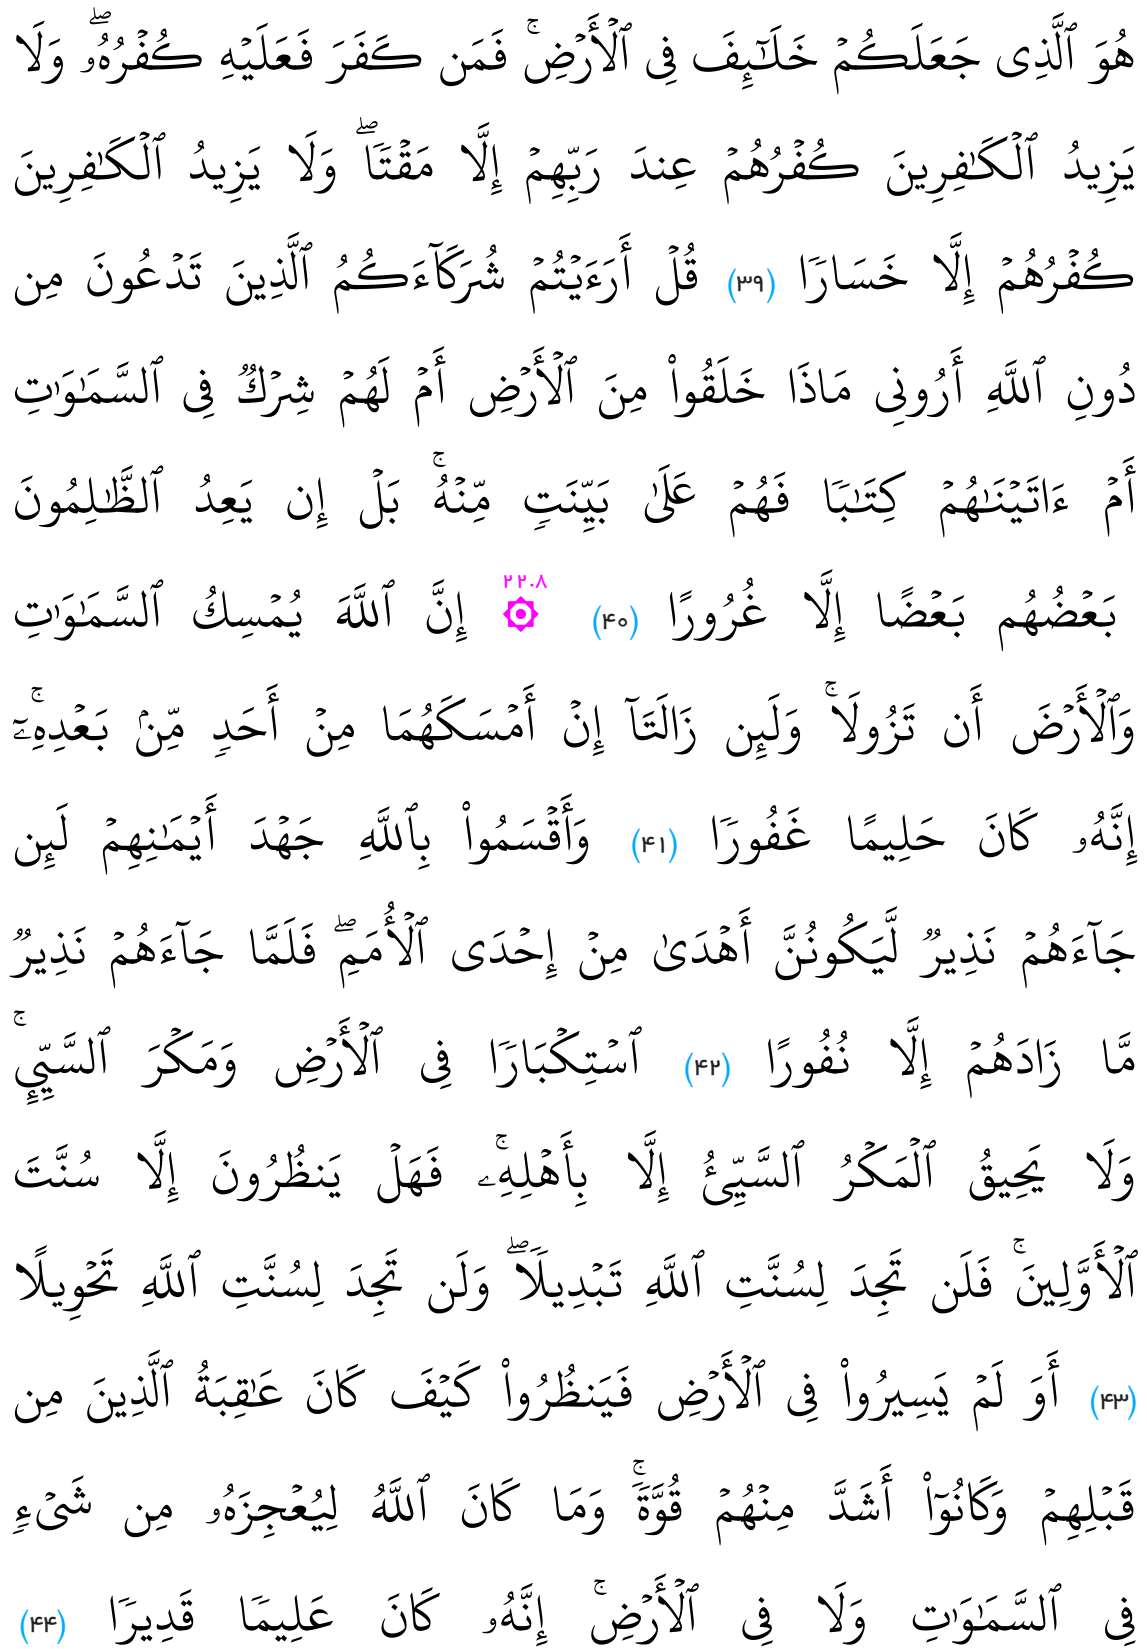 هُوَ ٱلَّذِى جَعَلَكُمْ خَلَـٰٓئِفَ فِى ٱلْأَرْضِ ۚ فَمَن كَفَرَ فَعَلَيْهِ كُفْرُهُۥ ۖ وَلَا
يَزِيدُ ٱلْكَـٰفِرِينَ كُفْرُهُمْ عِندَ رَبِّهِمْ إِلَّا مَقْتًا ۖ وَلَا يَزِيدُ ٱلْكَـٰفِرِينَ
كُفْرُهُمْ إِلَّا خَسَارًا (۳۹) قُلْ أَرَءَيْتُمْ شُرَكَآءَكُمُ ٱلَّذِينَ تَدْعُونَ مِن
دُونِ ٱللَّهِ أَرُونِى مَاذَا خَلَقُوا۟ مِنَ ٱلْأَرْضِ أَمْ لَهُمْ شِرْكٌ فِى ٱلسَّمَـٰوَٰتِ
أَمْ ءَاتَيْنَـٰهُمْ كِتَـٰبًا فَهُمْ عَلَىٰ بَيِّنَتٍ مِّنْهُ ۚ بَلْ إِن يَعِدُ ٱلظَّـٰلِمُونَ
بَعْضُهُم بَعْضًا إِلَّا غُرُورًا (۴۰) ۲۲۰۸ ۞ إِنَّ ٱللَّهَ يُمْسِكُ ٱلسَّمَـٰوَٰتِ
وَٱلْأَرْضَ أَن تَزُولَا ۚ وَلَئِن زَالَتَآ إِنْ أَمْسَكَهُمَا مِنْ أَحَدٍ مِّنۢ بَعْدِهِۦٓ ۚ
إِنَّهُۥ كَانَ حَلِيمًا غَفُورًا (۴۱) وَأَقْسَمُوا۟ بِٱللَّهِ جَهْدَ أَيْمَـٰنِهِمْ لَئِن
جَآءَهُمْ نَذِيرٌ لَّيَكُونُنَّ أَهْدَىٰ مِنْ إِحْدَى ٱلْأُمَمِ ۖ فَلَمَّا جَآءَهُمْ نَذِيرٌ
مَّا زَادَهُمْ إِلَّا نُفُورًا (۴۲) ٱسْتِكْبَارًا فِى ٱلْأَرْضِ وَمَكْرَ ٱلسَّيِّئِ ۚ
وَلَا يَحِيقُ ٱلْمَكْرُ ٱلسَّيِّئُ إِلَّا بِأَهْلِهِۦ ۚ فَهَلْ يَنظُرُونَ إِلَّا سُنَّتَ
ٱلْأَوَّلِينَ ۚ فَلَن تَجِدَ لِسُنَّتِ ٱللَّهِ تَبْدِيلًا ۖ وَلَن تَجِدَ لِسُنَّتِ ٱللَّهِ تَحْوِيلًا
(۴۳) أَوَ لَمْ يَسِيرُوا۟ فِى ٱلْأَرْضِ فَيَنظُرُوا۟ كَيْفَ كَانَ عَـٰقِبَةُ ٱلَّذِينَ مِن
قَبْلِهِمْ وَكَانُوٓا۟ أَشَدَّ مِنْهُمْ قُوَّةً ۚ وَمَا كَانَ ٱللَّهُ لِيُعْجِزَهُۥ مِن شَىْءٍ
فِى ٱلسَّمَـٰوَٰتِ وَلَا فِى ٱلْأَرْضِ ۚ إِنَّهُۥ كَانَ عَلِيمًا قَدِيرًا (۴۴)